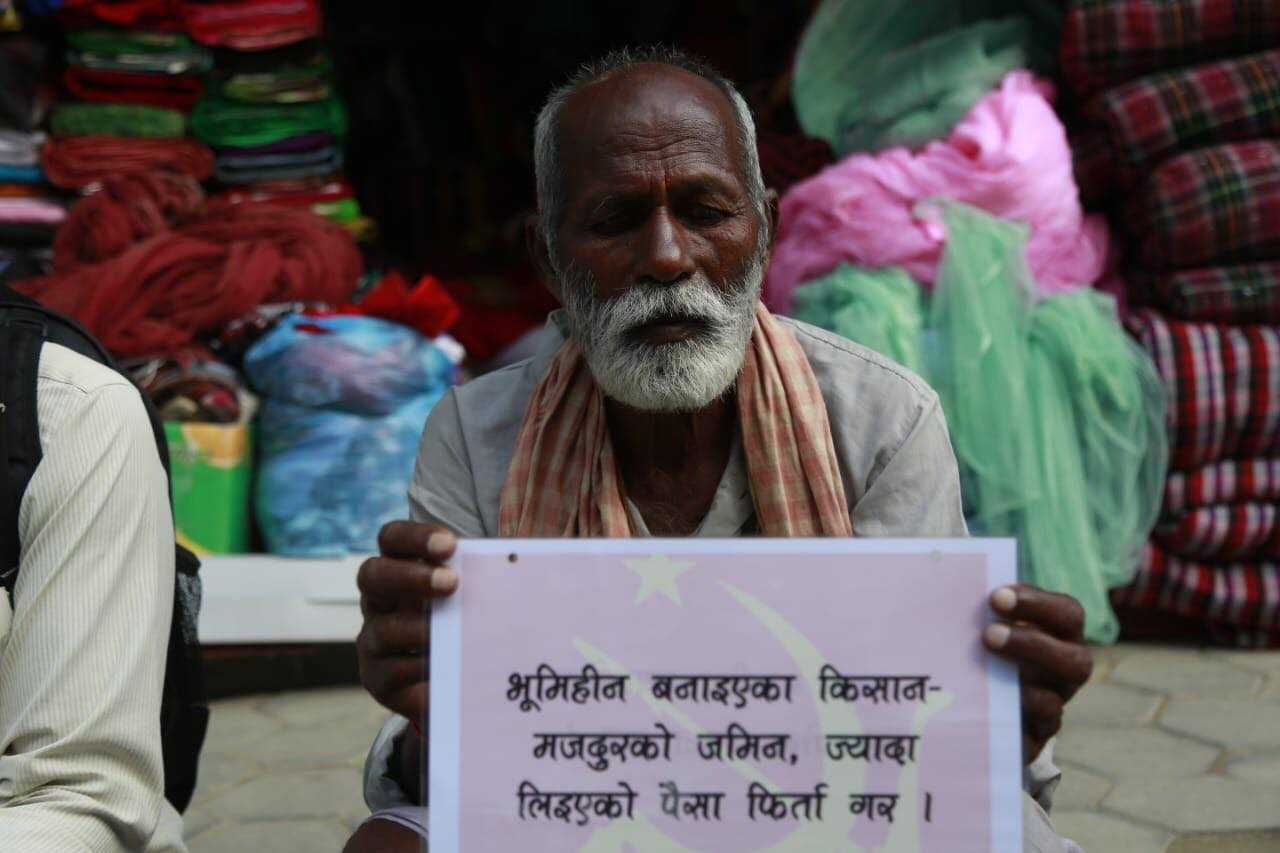 भूमिहीन बनाइएका किसान-
मजदुरको जमिन, ज्यादा
लिइएको पैसा फिर्ता गर ।